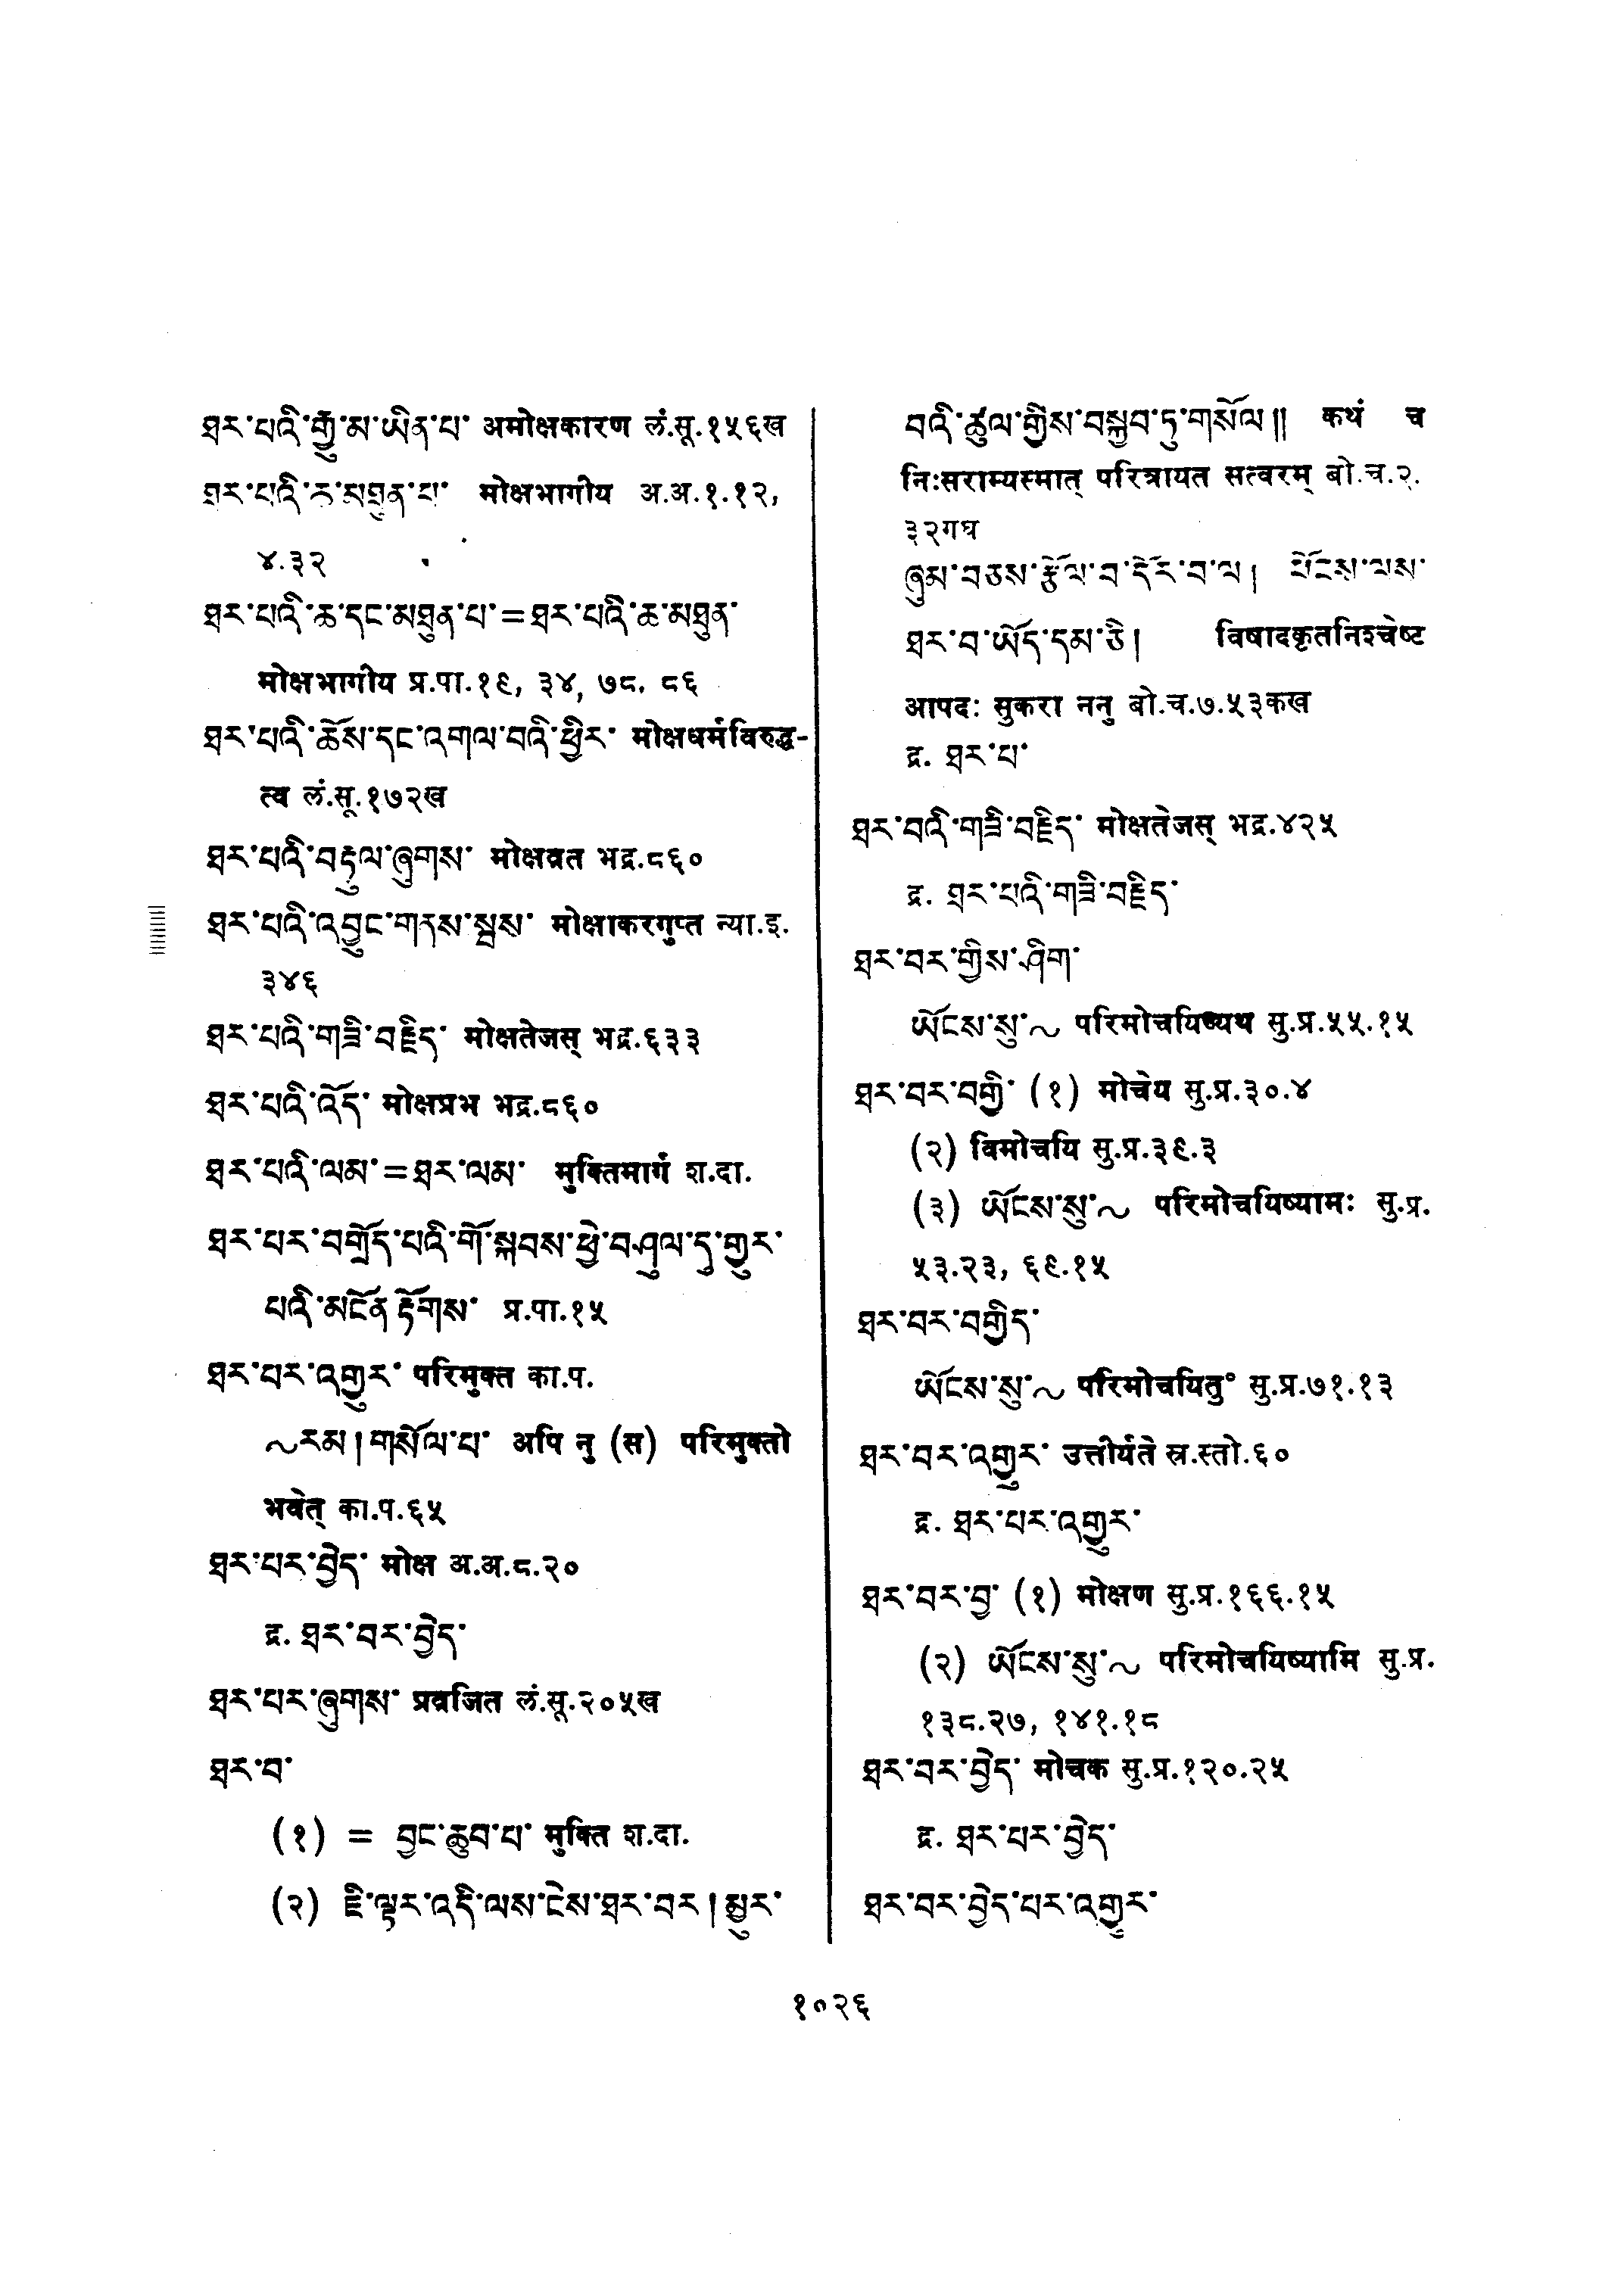 ཐར་པའི་རྒྱུ་མ་ཡིན་པ་ अमोक्षकारण लं.सू.१५६ख
ཐར་པའི་ཆ་མཐུན་པ་ मोक्षभागीय अ.अ.१.१२,
४.३२
ཐར་པའི་ཆ་དང་མཐུན་པ་=ཐར་པའི་ཆ་མཐུན་
मोक्षभागीय प्र.पा.१९, ३४, ७८, ८६
ཐར་པའི་ཆོས་དང་འགལ་བའི་ཕྱིར་ मोक्षधर्मविरुद्ध-
त्व लं.सू.१७२ख
ཐར་པའི་བརྟུལ་ཞུགས་ मोक्षव्रत भद्र.८६०
ཐར་པའི་འབྱུང་གནས་སྦས་ मोक्षाकरगुप्त न्या.इ.
३४६
ཐར་པའི་གཟི་བརྗིད་ मोक्षतेजस् भद्र.६३३
ཐར་པའི་འོད་ मोक्षप्रभ भद्र.८६०
ཐར་པའི་ལམ་=ཐར་ལམ་ मुक्तिमार्ग श.दा.
ཐར་པར་བགྲོད་པའི་གོ་སྐབས་ཕྱེ་བ་ཤུལ་དུ་གྱུར་
པའི་མངོན་རྟོགས་ प्र.पा.१५
ཐར་པར་འགྱུར་ परिमुक्त का.प.
~རམ།གསོལ་པ་ अपि नु (स) परिमुक्तो
भवेत् का.प.६५
ཐར་པར་བྱེད་ मोक्ष अ.अ.८.२०
द्र. ཐར་བར་བྱེད་
ཐར་པར་ཞུགས་ प्रव्रजित लं.सू.२०५ख
ཐར་བ་
(१) = བྱང་ཆུབ་པ་ मुक्ति श.दा.
(२) ཇི་ལྟར་འདི་ལས་ངེས་ཐར་བར།མྱུར་
བའི་ཚུལ་གྱིས་བསྐྱབ་ཏུ་གསོལ།། कथं च
निःसराम्यस्मात् परित्रायत सत्वरम् बो.च.२.
३२गघ
ཞུམ་བཅས་རྩོལ་བ་དོར་བ་ལ། ཕོངས་ལས་
ཐར་བ་ཡོད་དམ་ཅི། विषादकृतनिश्चेष्ट
आपदः सुकरा ननु बो.च.७.५३कख
द्र. ཐར་པ་
ཐར་བའི་གཟི་བརྗིད་ मोक्षतेजस् भद्र.४२५
द्र. ཐར་པའི་གཟི་བརྗིད་
ཐར་བར་གྱིས་ཤིག་
ཡོངས་སུ་~ परिमोचयिष्यथ सु.प्र.५५.१५
ཐར་བར་བགྱི་ (१) मोचेय सु.प्र.३०.४
(२) विमोचयि सु.प्र.३९.३
(३) ཡོངས་སུ་~ परिमोचयिष्यामः सु.प्र.
५३.२३, ६९.१५
ཐར་བར་བགྱིད་
ཡོངས་སུ་~ परिमोचयितु° सु.प्र.७१.१३
ཐར་བར་འགྱུར་ उत्तीर्यते स्र.स्तो.६०
द्र. ཐར་པར་འགྱུར་
ཐར་བར་བྱ་ (१) मोक्षण सु.प्र.१६६.१५
(२) ཡོངས་སུ་~ परिमोचयिष्यामि सु.प्र.
१३८.२७, १४१.१८
ཐར་བར་བྱེད་ मोचक सु.प्र.१२०.२५
द्र. ཐར་པར་བྱེད་
ཐར་བར་བྱེད་པར་འགྱུར་
१०२६